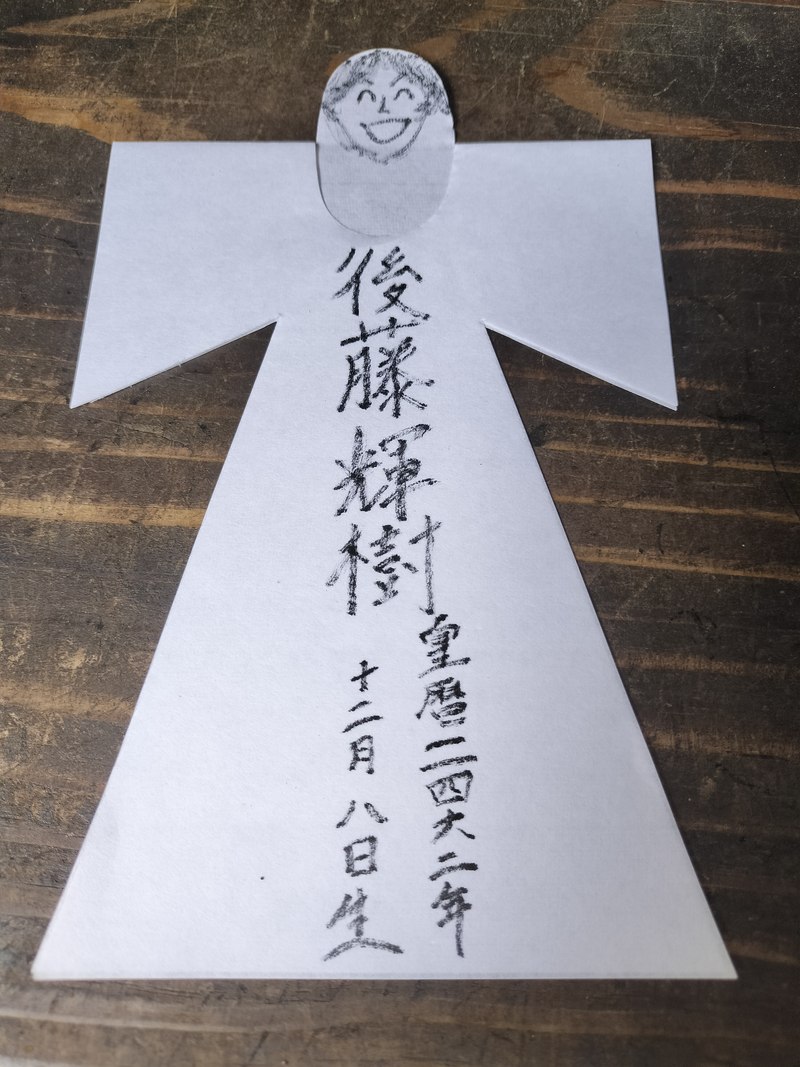 後藤輝樹
皇暦二四六二年
十二月八日生